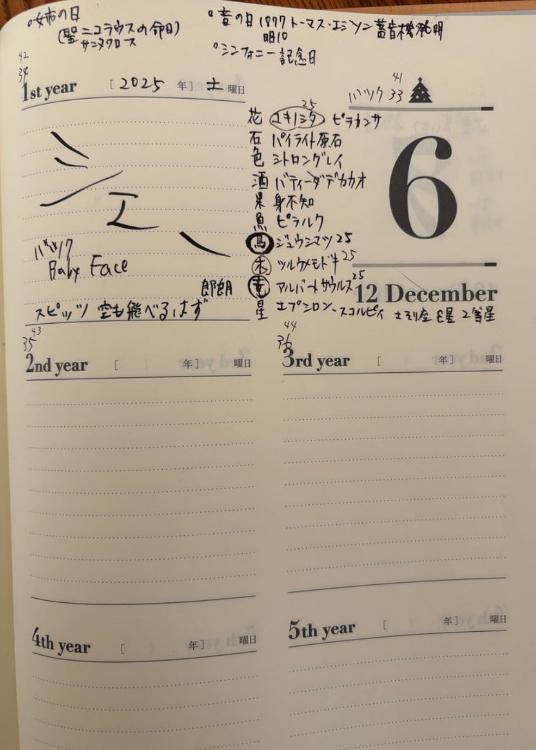 °姉の日
(聖ニコラウスの命日)
サンタクロース
°音の日 1877 トーマス・エジソン 蓄音機発明
明10
°シンフォニー記念日
42
34
1st year [ 2025 年] 土 曜日
シェー
バッツ
Baby Face
郎朗
スピッツ 空も飛べるはず
25
花 ユキノシタ ピラカンサ
石 パイライト原石
色 シトロングレイ
酒 バティーダデカカオ
果 身不知
魚 ピラルク
鳥 ジュウシマツ 25
木 ツルウメモドキ 25
竜 アルバートサウルス 25
星 エプシロン・スコルピィ さそり座 2等星
41
33
6
12 December
43
35
2nd year [ 年] 曜日
44
36
3rd year [ 年] 曜日
4th year [ 年] 曜日
5th year [ 年] 曜日